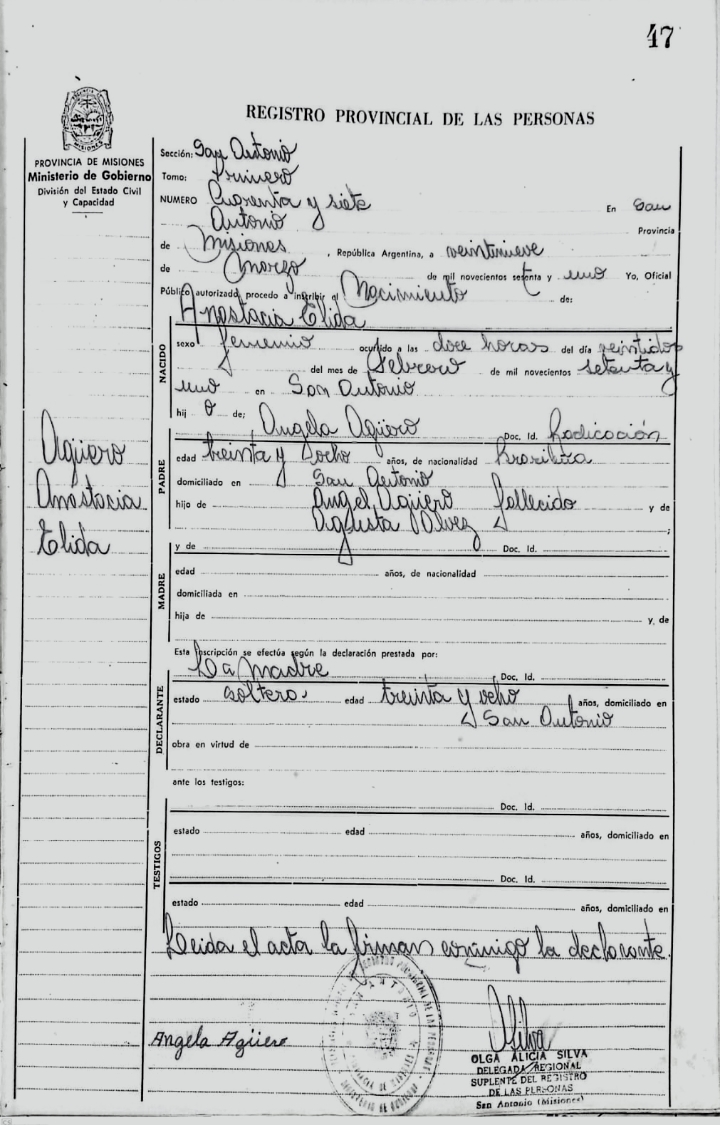 47
REGISTRO PROVINCIAL DE LAS PERSONAS
PROVINCIA DE MISIONES
Ministerio de Gobierno
División del Estado Civil
y Capacidad
Sección: San Antonio
Tomo: Primero
NUMERO Cuarenta y siete En San
Antonio Provincia
de Misiones , República Argentina, a veintinueve
de Marzo de mil novecientos setenta y uno Yo, Oficial
Público autorizado procedo a inscribir el Nacimiento de:
Anastacia Elida
NACIDO
sexo femenio ocurrido a las doce horas del día veintidos
del mes de Febrero de mil novecientos setenta y
uno en San Antonio
hij o de; Angela Agüero Doc. Id. Radicación
Agüero
Anastacia
Elida
PADRE
edad treinta y ocho años, de nacionalidad Brasilera
domiciliado en San Antonio
hijo de Angel Agüero fallecido y de
Alvez ;
y de Doc. Id.
MADRE
edad años, de nacionalidad
domiciliada en
hija de y, de
Esta inscripción se efectúa según la declaración prestada por:
La Madre Doc. Id.
DECLARANTE
estado soltera edad treinta y ocho años, domiciliado en
San Antonio
obra en virtud de
ante los testigos:
Doc. Id.
TESTIGOS
estado edad años, domiciliado en
Doc. Id.
estado edad años, domiciliado en
Leida el acta la firman conmigo la declarante.
Angela Agüero
Silva
OLGA ALICIA SILVA
DELEGADA REGIONAL
SUPLENTE DEL REGISTRO
DE LAS PERSONAS
San Antonio (Misiones)